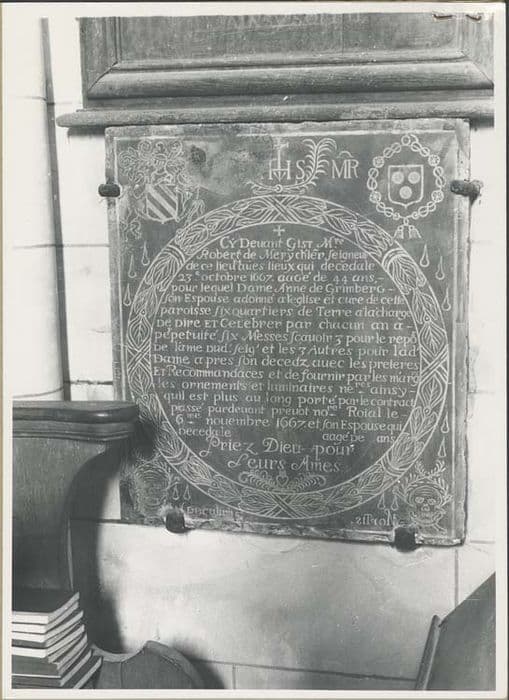 IHS MR
CY Deuant GIST M.re
Robert de Merychier seigneur
de ce lieu
qui deceda le
23.e octobre 1667. aagé de 44 ans,
pour lequel Dame Anne de Grimberg
son Espouse a donné a leglise et cure de cette
paroisse six quartiers de Terre a la charge
DE DIRE ET CELEBRER par chacun an a
perpetuité six Messes scauoir 3 pour le repo
De lame dud. seig.r et les 3 Autres pour lad
Dame apres son decedz auec les preleres
Et Recommandaces et de fournir par les marg
les ornements et luminaires ne.res ainsy
quil est plus au long porté par le contract
passé pardeuant preuot no.re Roial le
6.me nouembre 1667. et son Espouse qui
Deceda le aagée de ans
Priez Dieu pour
Leurs Ames.